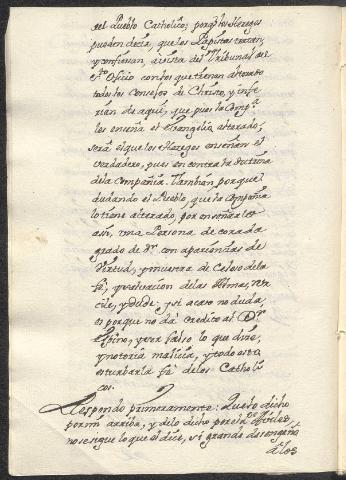 del Pueblo Catholico; porq̃ los Hereges
pueden decir, que los Papistas tuercen,
y confiessan, a vista del Tribunal del
Sto. Oficio con los que tienen alterado
todos los Consejos de Christo, y infe
rian de aqui, que pues la Compa.
les enseña el Evangelio alterado,
será el que los Hereges enseñan el
verdadero, pues en contra la doctrina
de la Compañia. Tambien porque
dudando el Pueblo, que la Compañia
lo tiene alterado, por enseñarlo
assi, una Persona de
grado de Dr. con apariencias de
Virtud, y muestra de Celoso de la
fé, y salvacion de las Almas,
y dude: y si acaso no duda,
es porque no dá credito al Dr.
Espino, y ver falso lo que dize,
y notoria malicia, y todo esto
es turbar la fé de los Catholi
cos.
Respondo primeramente: Que lo dicho
por mi arriba, y de lo dicho por el
no se sigue lo que el dice, si grande desengaño
a los